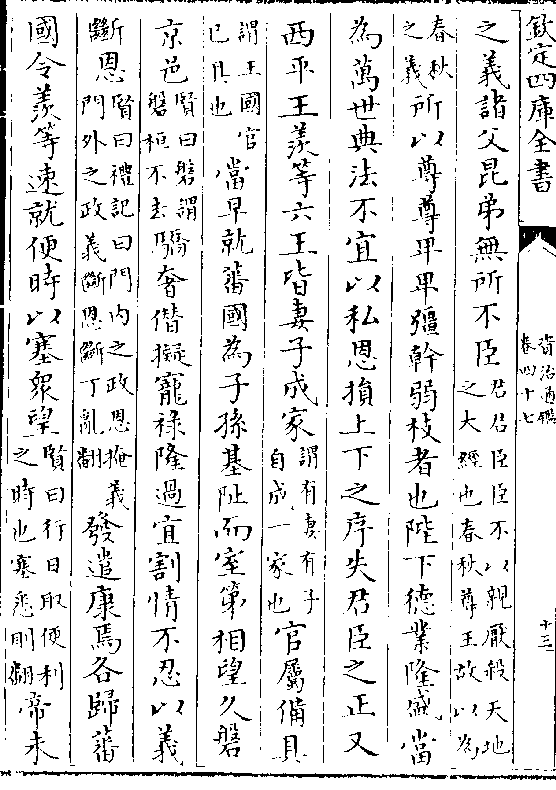 欽定四庫全書
資治通鑑
卷四十七
十三
之義諸父昆弟無所不臣君君臣臣不以親厭殺天地之大經也春秋尊王故以為
春秋之義所以尊尊卑卑彊幹弱枝者也陛下德業隆盛當
為萬世典法不宜以私恩損上下之序失君臣之正又
西平王羨等六王皆妻子成家謂有妻有子自成一家也官屬備具
謂王國官已具也當早就蕃國為子孫基阯而室第相望久磐
京邑賢曰磐謂磐桓不去驕奢僭擬寵祿隆過宜割情不忍以義
斷恩賢曰禮記曰門内之政恩掩義門外之政義斷恩斷丁亂翻發遣康焉各歸蕃
國令羨等速就便時以塞衆望賢曰行日取便利之時也塞悉則翻帝未